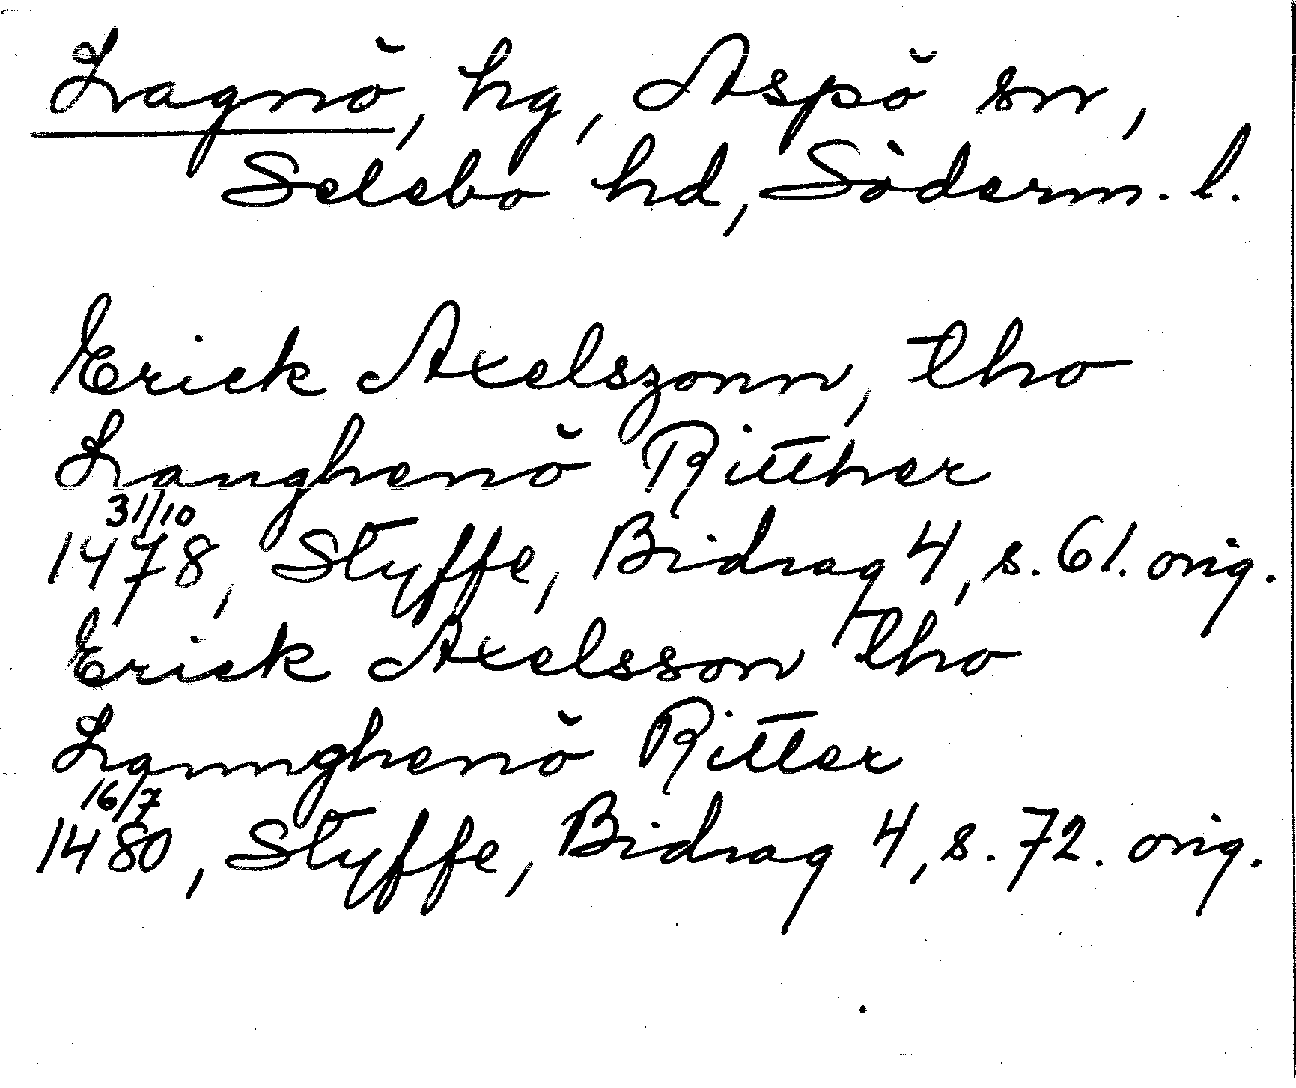 Lagnö, hg, Aspö sn,
Selebo hd, Söderm. l.
Erick Axelszonn, tho
Langhenö Ritther
31/10
1478, Styffe, Bidrag 4, s. 61. orig.
Erick Axelsson tho
Lannghenö Ritter
16/7
1480, Styffe, Bidrag 4, s. 72. orig.